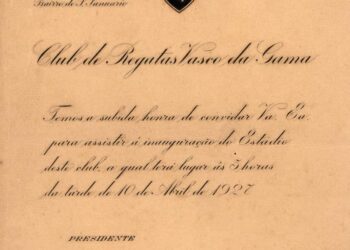 Bairro de S. Januario
Club de Regatas Vasco da Gama
Temos a subida honra de convidar Va. Ea.
para assistir á inauguração do Estadio
deste club, a qual terá logar ás 3 horas
da tarde de 10 de Abril de 1927
PRESIDENTE